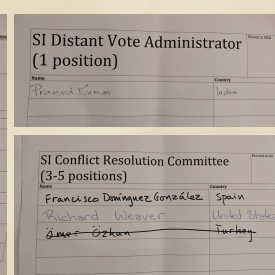 SI Distant Vote Administrator
(1 position)
Name Country
Pramod Kumar India
SI Conflict Resolution Committee
(3-5 positions)
Name Country
Francisco Domínguez González Spain
Richard Weaver United States
Ömer Özkan Turkey